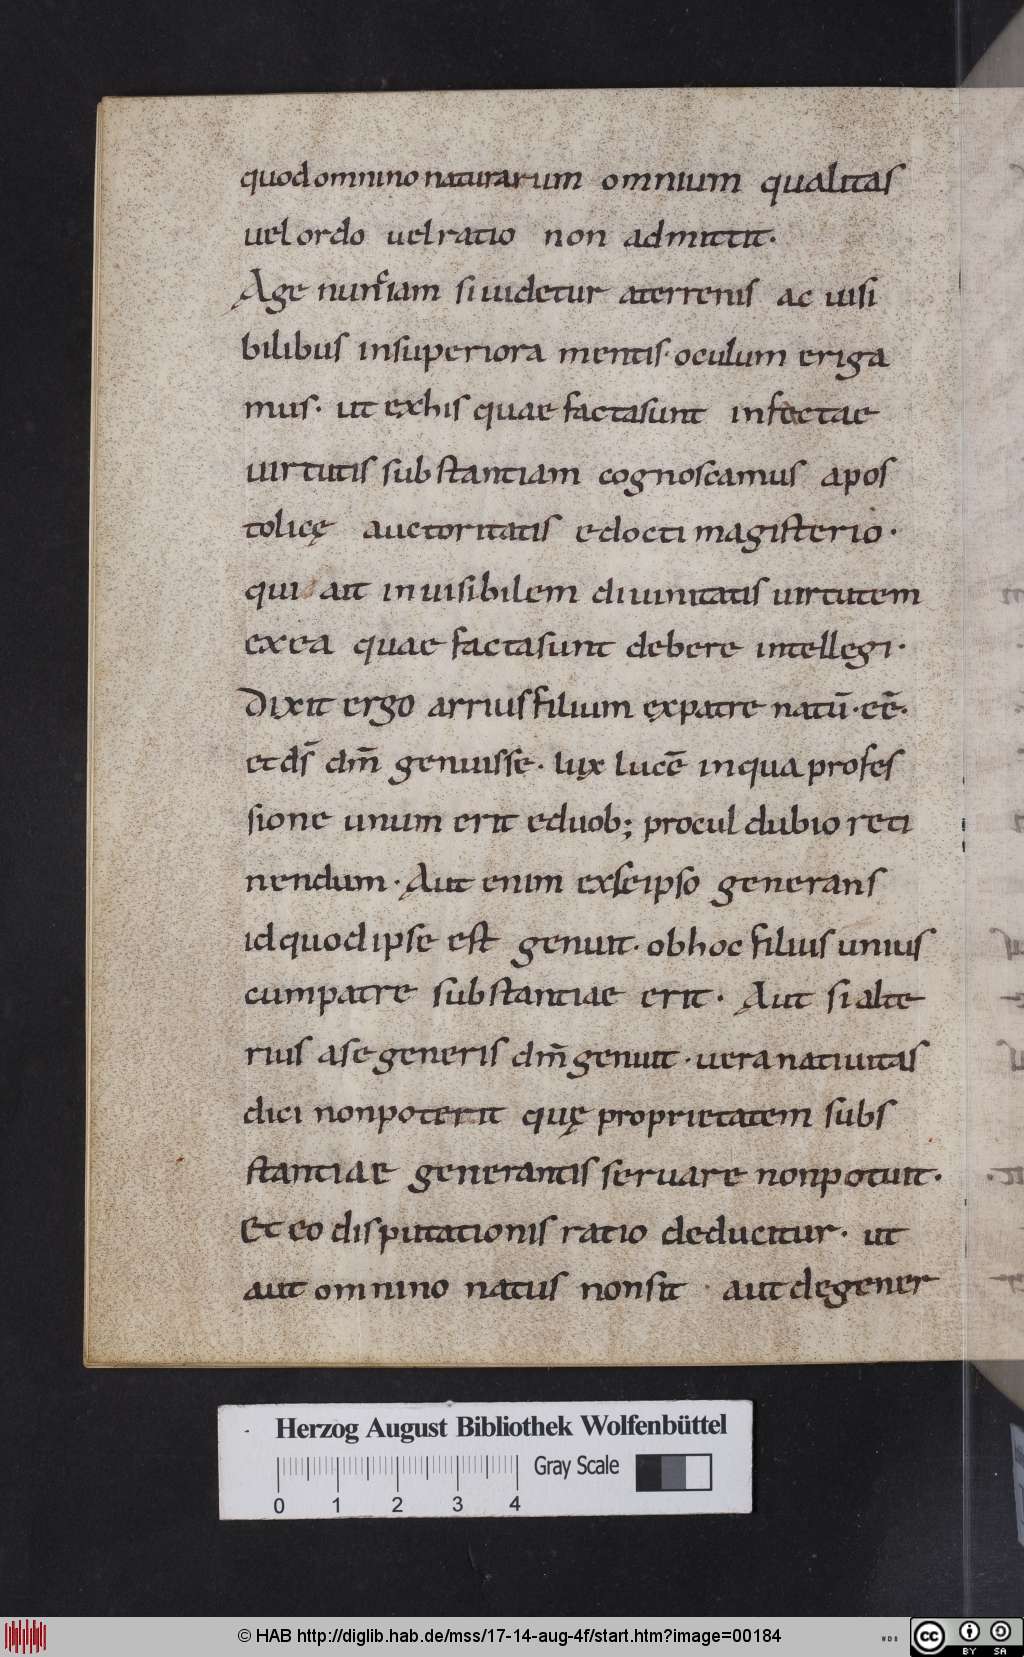 quod omnino naturarum omnium qualitas
uel ordo uel ratio non admittit.
Age nunc iam si uidetur a terrenis ac uisi
bilibus in superiora mentis· oculum eriga
mus· ut ex his quae facta sunt infectae
uirtutis substantiam cognoscamus apos
tolicę auctoritatis edocti magisterio·
qui ait inuisibilem diuinitatis uirtutem
ex ea quae facta sunt debere intellegi·
Dixit ergo arrius filium ex patre natū·eē·
et ds̄ dm̄ genuisse· lux lucē in qua profes
sione unum erit e duob; procul dubio reti
nendum· Aut enim ex se ipso generans
id quod ipse est genuit· ob hoc filius unius
cum patre substantiae erit· Aut si alte
rius a se generis dm̄ genuit· uera natiuitas
dici non poterit quę proprietatem subs
stantiae generantis seruare non potuit·
Et eo disputationis ratio deducitur· ut
aut omnino natus non sit · aut degener
Herzog August Bibliothek Wolfenbüttel
Gray Scale
0 1 2 3 4
© HAB http://diglib.hab.de/mss/17-14-aug-4f/start.htm?image=00184
WDB
cc BY SA